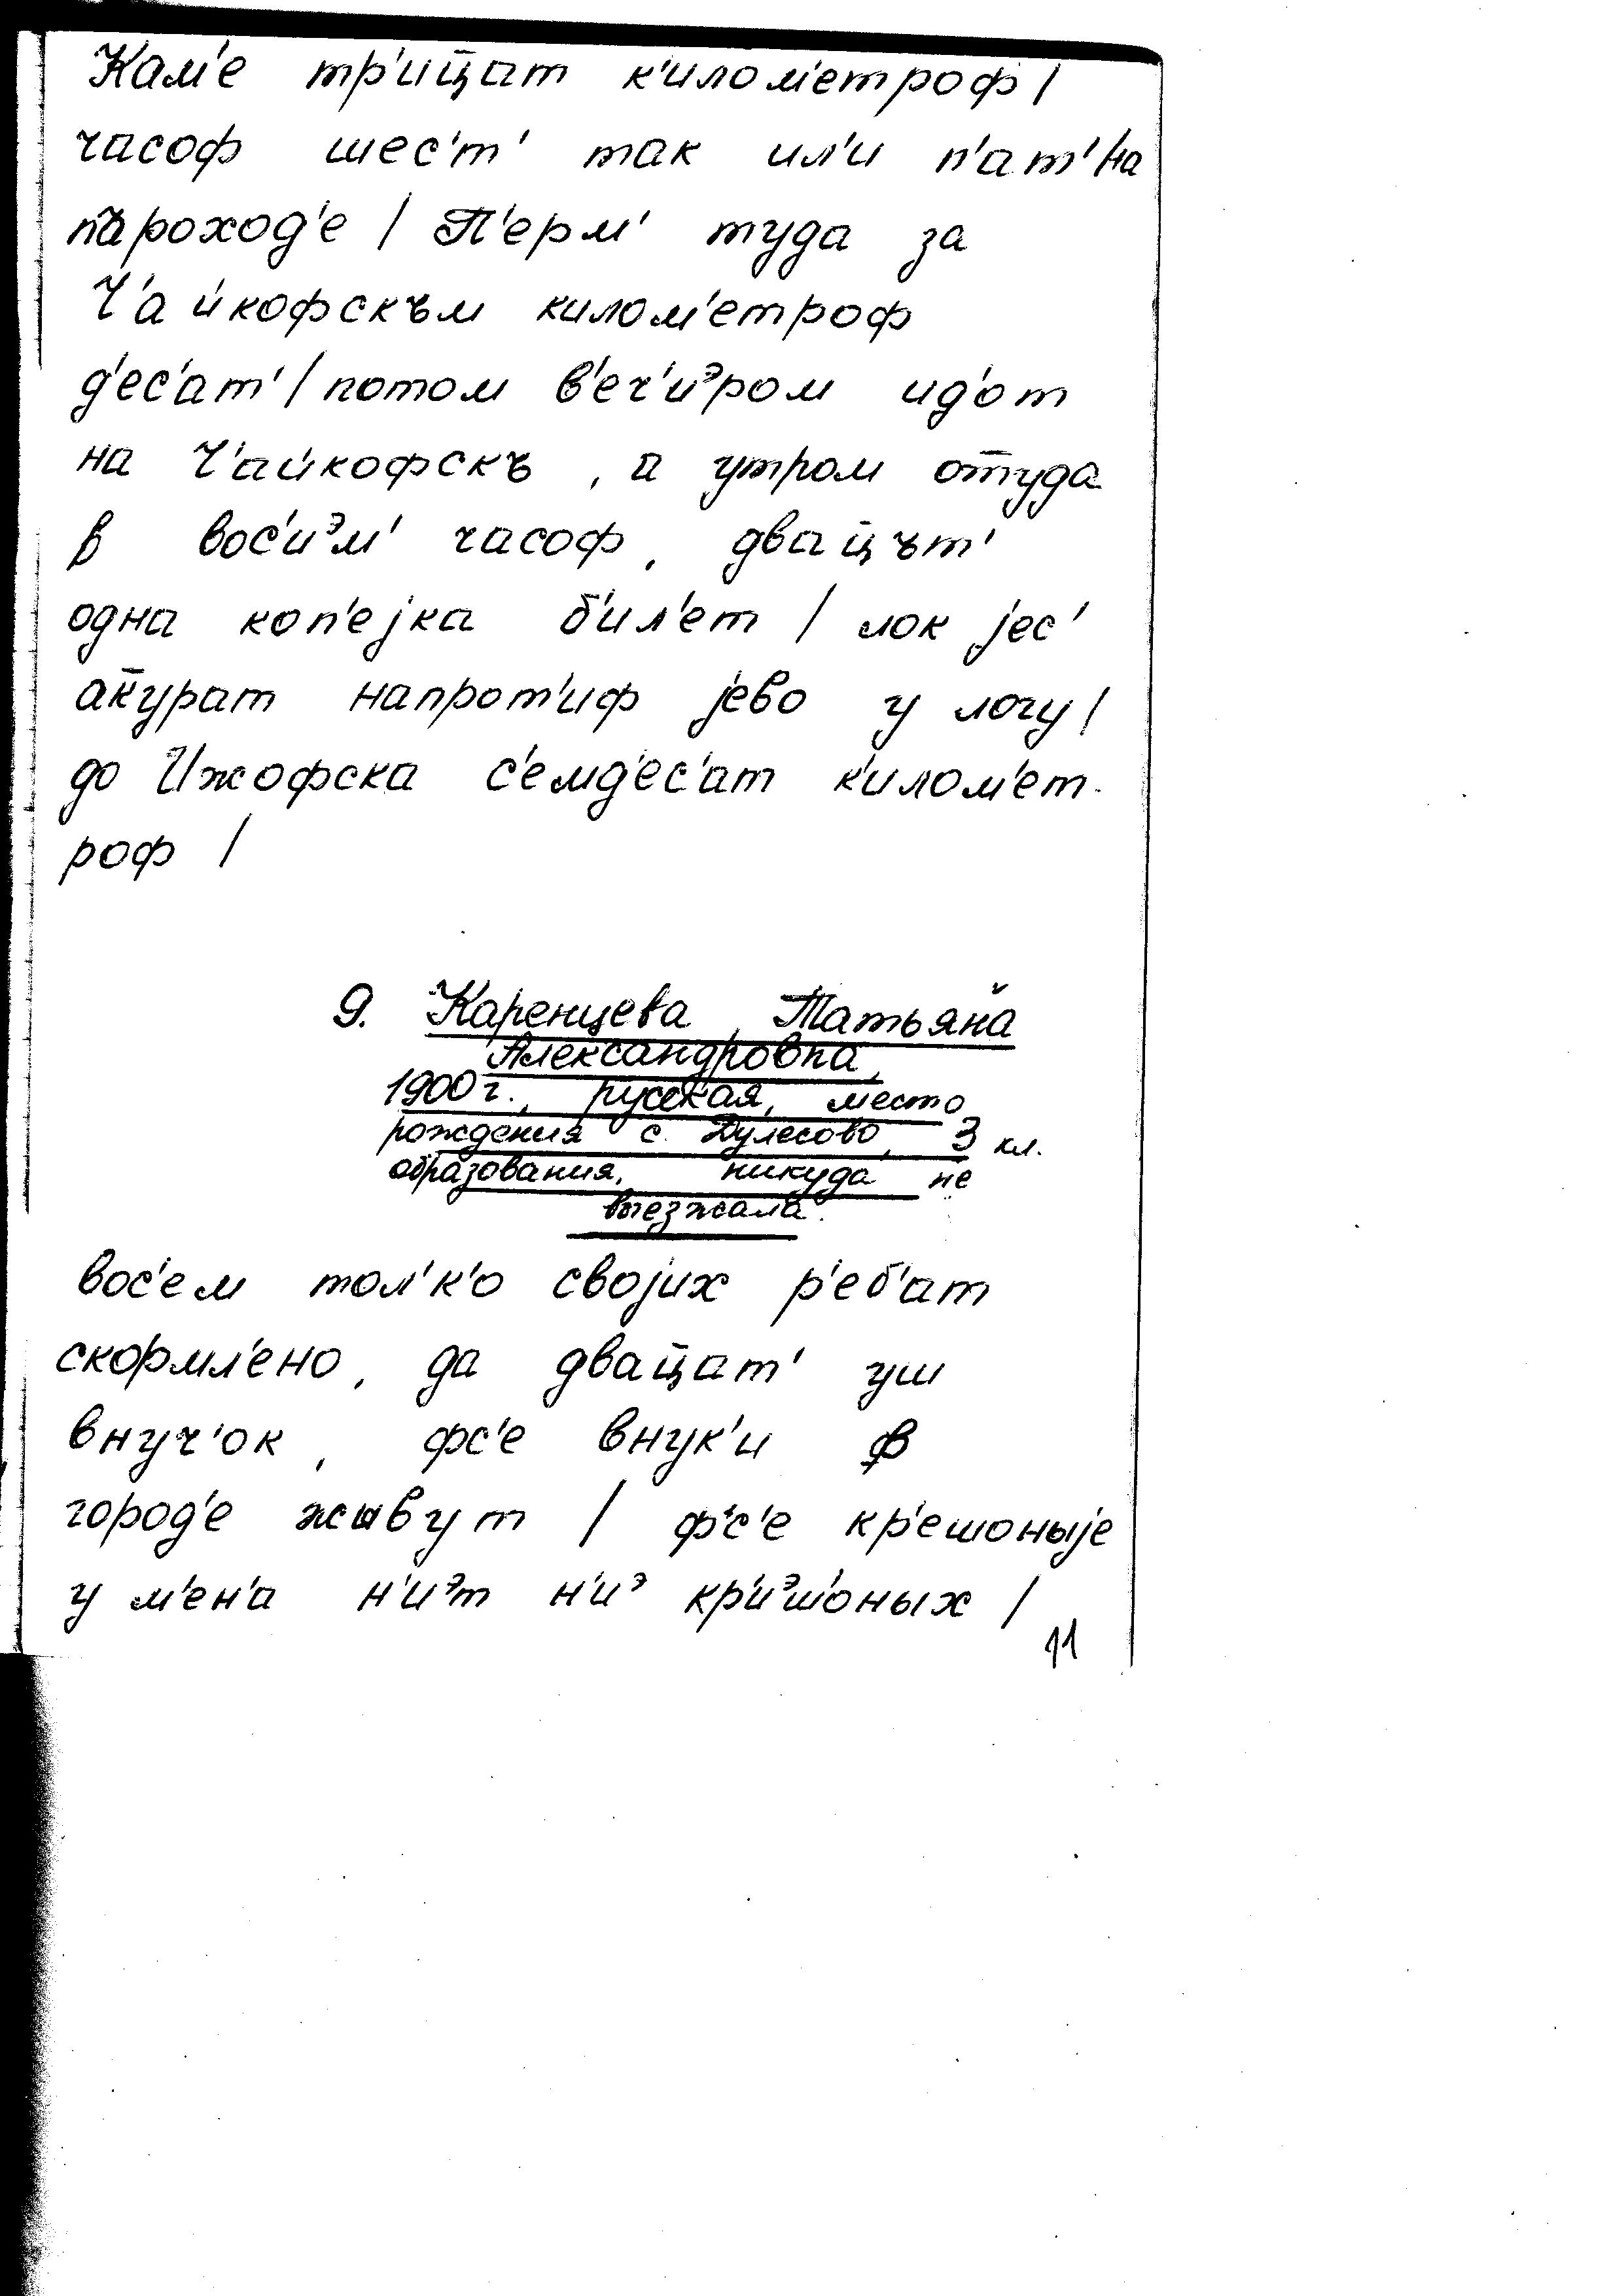 Кам'е тр'иц̄ат к'илом'етроф /
часоф шес'т' так ил'и п'ат' / на
пароход'е / П'ерм' туда за
Ч'айкофскъм килом'етроф
д'ес'ат' / потом в'еч'иэром ид'от
на Ч'айкофскъ, а утром от̄уда
в вос'иэм' часоф, двац̄ът'
одна коп'ејка б'ил'ет / лок јес'
ак̄урат напрот'иф јево у логу /
до Ижофска с'емд'ес'ат к'илом'ет-
роф /
9. Каренцева Татьяна
Александровна,
1900 г., русская, место
рождения с. Дулесово, 3 кл.
образования, никуда не
выезжала.
вос'ем тол'к'о својих р'еб'ат
скормл'ено, да двац̄ат' уш
внуч'ок, фс'е внук'и ф
город'е жывут / ф'с'е кр'ешоныје
у м'ен'а н'иэт н'иэ кр'иэш'оных /
11